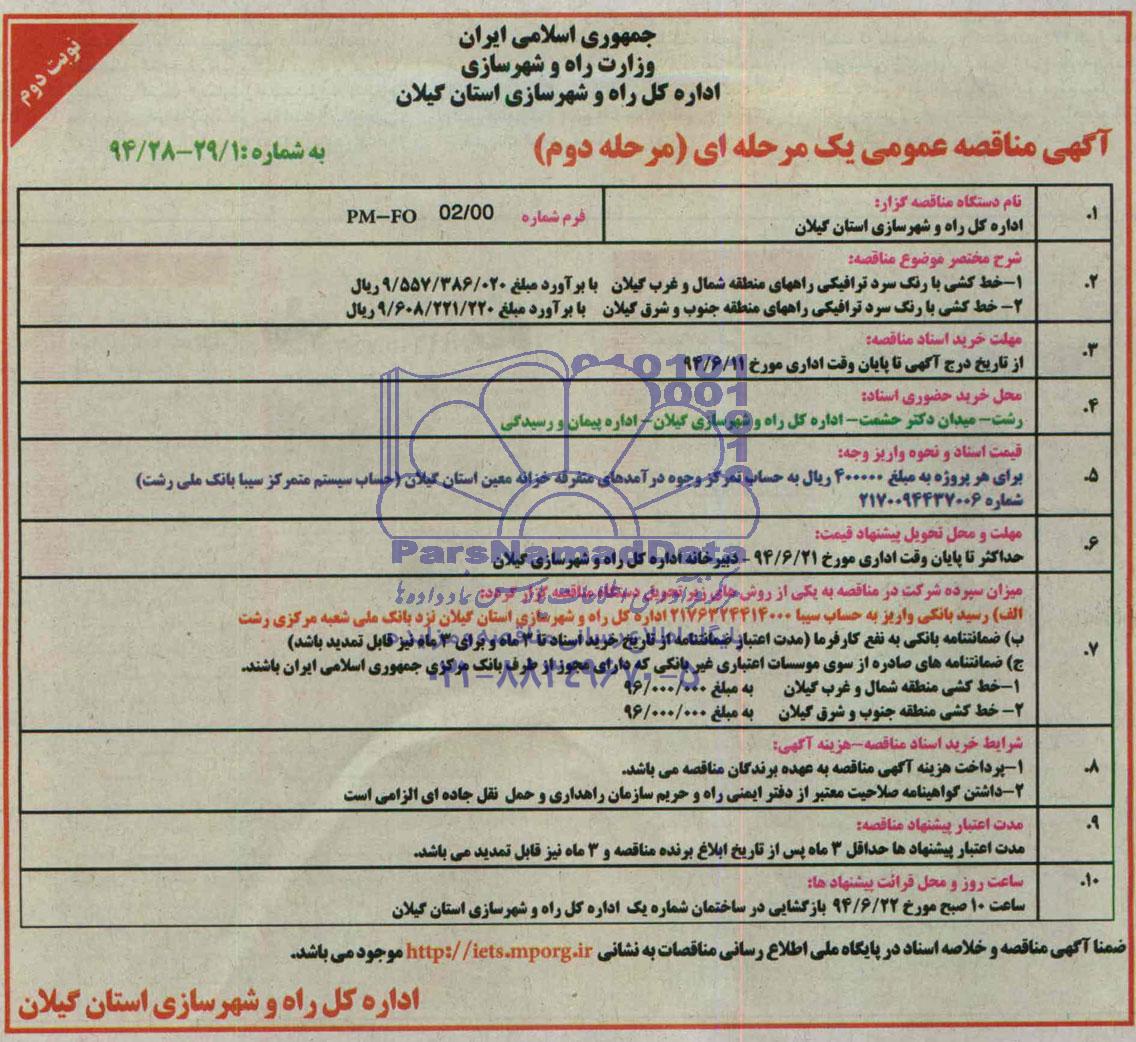 نوبت دوم
جمهوری اسلامی ایران
وزارت راه و شهرسازی
اداره کل راه و شهرسازی استان گیلان
آگهی مناقصه عمومی یک مرحله ای (مرحله دوم)
به شماره: ۲۹/۱-۹۴/۲۸
۱. نام دستگاه مناقصه گزار:
اداره کل راه و شهرسازی استان گیلان
فرم شماره PM-FO 02/00
۲. شرح مختصر موضوع مناقصه:
۱-خط کشی با رنگ سرد ترافیکی راههای منطقه شمال و غرب گیلان با برآورد مبلغ ۹/۵۵۷/۳۸۶/۰۲۰ ریال
۲- خط کشی با رنگ سرد ترافیکی راههای منطقه جنوب و شرق گیلان با برآورد مبلغ ۹/۶۰۸/۲۲۱/۲۲۰ ریال
۳. مهلت خرید اسناد مناقصه:
از تاریخ درج آگهی تا پایان وقت اداری مورخ ۹۴/۶/۱۱
۴. محل خرید حضوری اسناد:
رشت- میدان دکتر حشمت- اداره کل راه و شهرسازی گیلان- اداره پیمان و رسیدگی
۵. قیمت اسناد و نحوه واریز وجه:
برای هر پروژه به مبلغ ۴۰۰۰۰۰ ریال به حساب تمرکز وجوه درآمدهای متفرقه خزانه معین استان گیلان (حساب سیستم متمرکز سیبا بانک ملی رشت)
شماره ۲۱۷۰۰۹۴۴۳۷۰۰۶
۶. مهلت و محل تحویل پیشنهاد قیمت:
حداکثر تا پایان وقت اداری مورخ ۹۴/۶/۲۱ - دبیرخانه اداره کل راه و شهرسازی گیلان
۷. میزان سپرده شرکت در مناقصه به یکی از روش های زیر تحویل دستگاه مناقصه گزار گردد:
الف) رسید بانکی واریز به حساب سیبا ۲۱۷۶۳۲۴۴۱۴۰۰۰ اداره کل راه و شهرسازی استان گیلان نزد بانک ملی شعبه مرکزی رشت
ب) ضمانتنامه بانکی به نفع کارفرما (مدت اعتبار ضمانتنامه از تاریخ خرید اسناد تا ۳ ماه و برای ۳ ماه نیز قابل تمدید باشد)
ج) ضمانتنامه های صادره از سوی موسسات اعتباری غیر بانکی که دارای مجوز از طرف بانک مرکزی جمهوری اسلامی ایران باشند.
۱-خط کشی منطقه شمال و غرب گیلان به مبلغ ۹۶/۰۰۰/۰۰۰
۲- خط کشی منطقه جنوب و شرق گیلان به مبلغ ۹۶/۰۰۰/۰۰۰
۸. شرایط خرید اسناد مناقصه-هزینه آگهی:
۱-پرداخت هزینه آگهی مناقصه به عهده برندگان مناقصه می باشد.
۲-داشتن گواهینامه صلاحیت معتبر از دفتر ایمنی راه و حریم سازمان راهداری و حمل نقل جاده ای الزامی است
۹. مدت اعتبار پیشنهاد مناقصه:
مدت اعتبار پیشنهاد ها حداقل ۳ ماه پس از تاریخ ابلاغ برنده مناقصه و ۳ ماه نیز قابل تمدید می باشد.
۱۰. ساعت روز و محل قرائت پیشنهاد ها:
ساعت ۱۰ صبح مورخ ۹۴/۶/۲۲ بازگشایی در ساختمان شماره یک اداره کل راه و شهرسازی استان گیلان
ضمنا آگهی مناقصه و خلاصه اسناد در پایگاه ملی اطلاع رسانی مناقصات به نشانی http://iets.mporg.ir موجود می باشد.
اداره کل راه و شهرسازی استان گیلان
ParsNamadData
۰۲۱-۸۸۳۴۹۶۷۰-۵